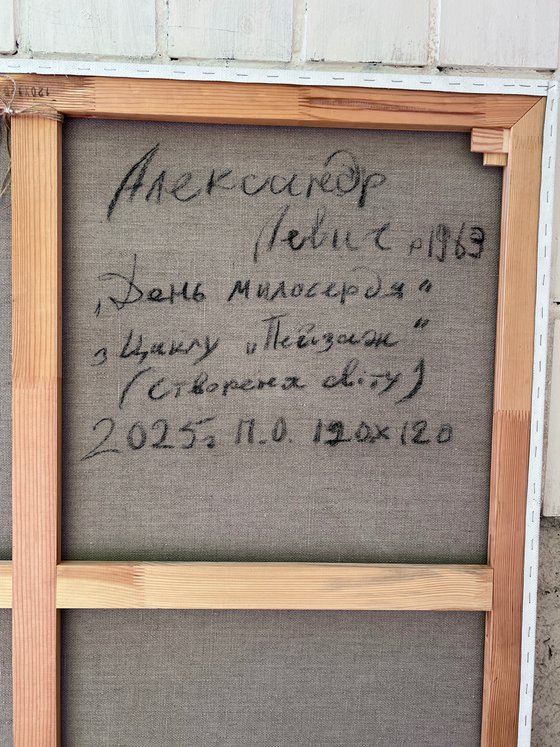 Александр
Левич р1963
„День милосердя“
з Циклу „Пейзаж“
(Створеня світу)
2025г. П.О. 120х120